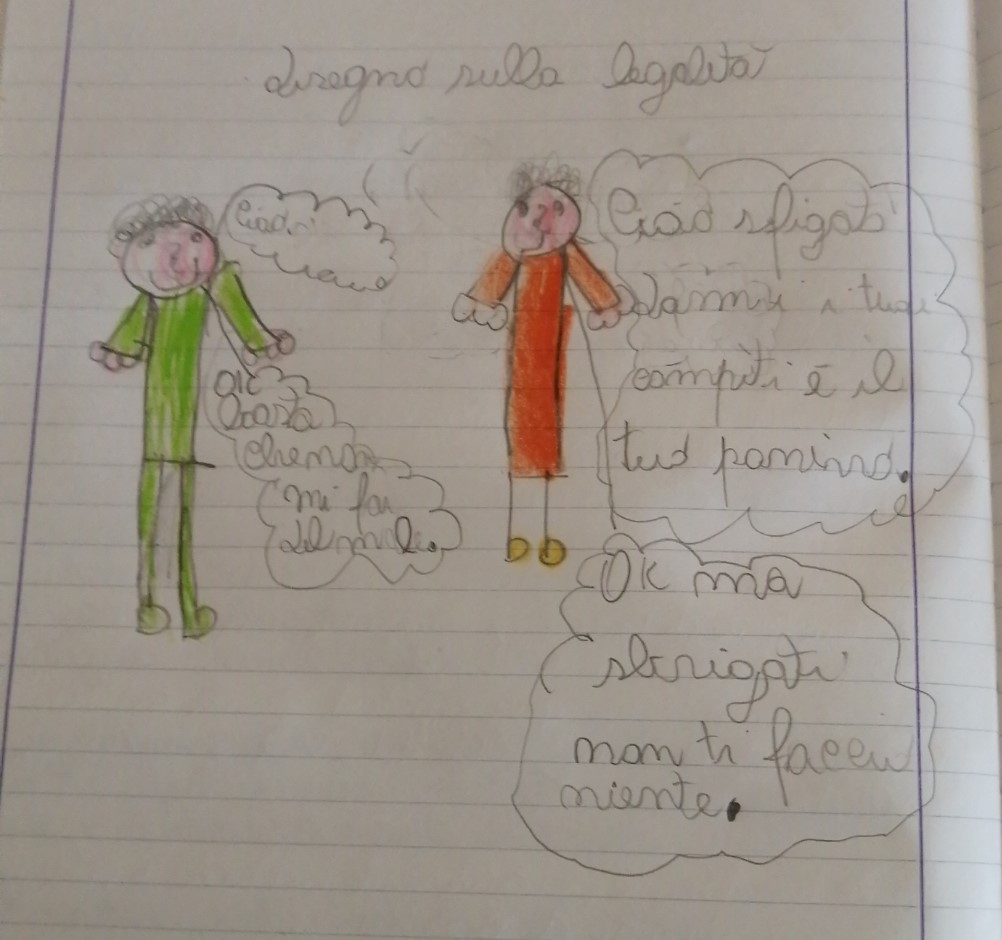 disegno sulla legalità
Ciao
Ciao sfigati
dammi i tuoi
compiti è il
tuo panino.
ok
basta
che non
mi fai
del male.
OK ma
sbrigati
non ti faccio
niente.